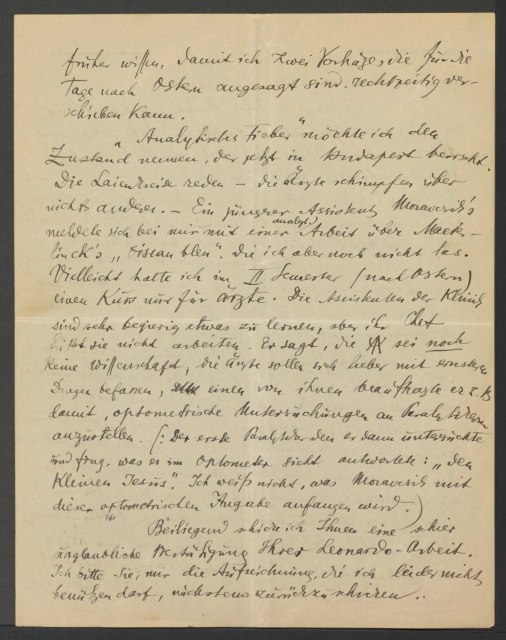 früher wissen, damit ich zwei Vorträge, die für die
Tage nach Ostern angesagt sind, rechtzeitig ver-
schieben kann.
„Analytisches Fieber" möchte ich den
Zustand nennen, der jetzt in Budapest herrscht.
Die Laienkreise reden – die Ärzte schimpfen über
nichts anderes. – Ein jüngerer Assistent Moravcsik's
meldete sich bei mir mit einer analyt. Arbeit über Maeter-
linck's „Oiseau bleu", die ich aber noch nicht las.
Vielleicht halte ich im II Semester (nach Ostern)
einen Kurs nur für Ärzte. Die Assistenten der Klinik
sind sehr begierig etwas zu lernen, aber ihr Chef
läßt sie nicht arbeiten. Er sagt, die ΨA sei noch
keine Wissenschaft, die Ärzte sollen sich lieber mit ernsteren
Dingen befassen, einen von ihnen beauftragte er z. B
damit, optometrische Untersuchungen an Paralytikern
anzustellen. (: Der erste Paralytiker den er dann untersuchte
und frug, was er im Optometer sieht antwortete: „den
kleinen Jesus". Ich weiß nicht, was Moravcsik mit
dieser optometrischen Angabe anfangen wird.)
Beiliegend schicke ich Ihnen eine schier
unglaubliche Bestätigung Ihrer Leonardo-Arbeit.
Ich bitte Sie, mir die Aufzeichnung, die ich leider nicht
benützen darf, nächstens zurückzuschicken..